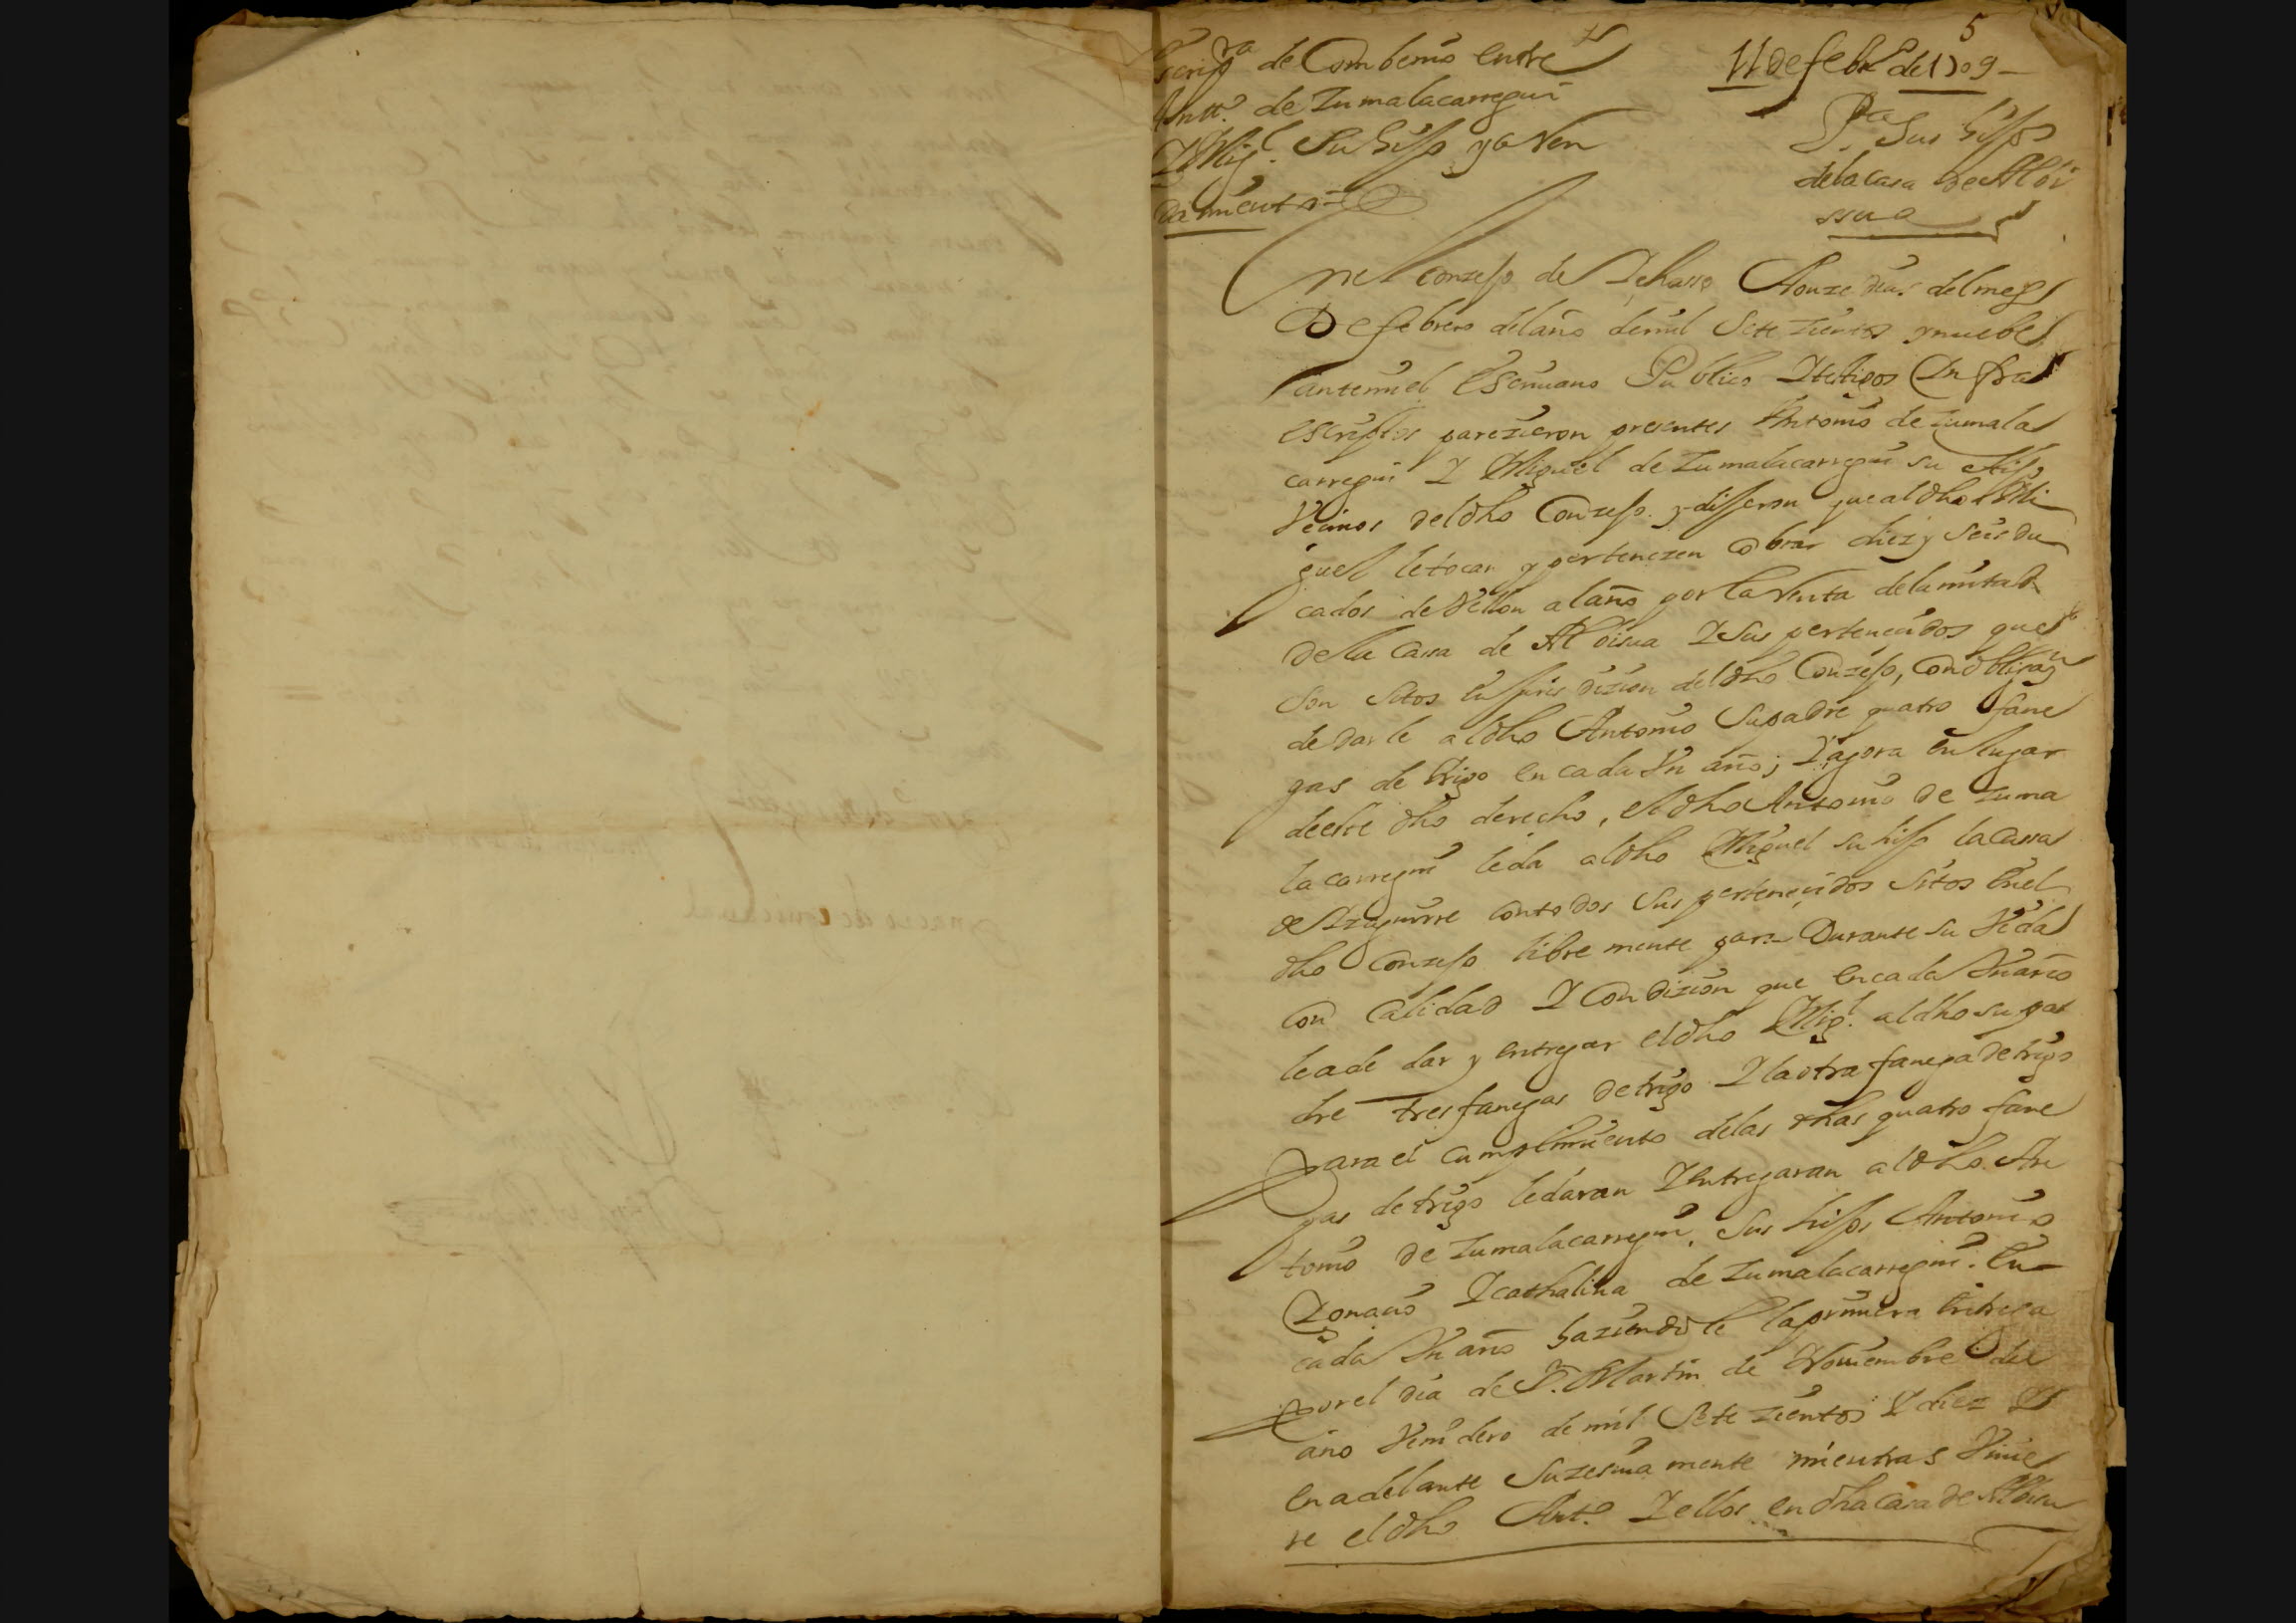 5
Scrip.ra de Combenio entre
Antt.o de Zumalacarregui
Y Mig.l Su hijo y a Ren
damiento
11 de feb.o de 1709
P.a Sus hijos
de la casa de Albi
ssua
En el conzejo de Ichasso A onze dias del mes
De febrero del año de mil Sete zientos y nuebe
ante mi el escriuano Publico Y testigos Infra
escriptos parezieron presentes Antonio de Zumala
carregui Y Miguel de Zumalacarregui su hijo
Vecinos del dho Conzejo y dijeron que al dho Mi
guel le tocan y pertenezen cobrar diez y seis du
cados de Vellon al año por la Renta de la mitad
de la Casa de Albisua Y Sus pertenecidos que
son Sitos en jurisdizion del dho Conzejo, con obligaz.n
de darle al dho Antonio Su padre quatro fane
gas de trigo en cada Vn año; Y agora en lugar
de este dho derecho, el dho Antonio de Zuma
lacarregui le da al dho Miguel su hijo la Cassa
de Yzaguirre con todos Sus pertenecidos Sitos en el
dho Conzejo libre mente para Durante su Vida
con Calidad Y Condizion que en cada Vn año
le a de dar y entregar el dho Mig.l al dho su pa
dre tres fanegas de trigo Y la otra fanega de trigo
para el cumplimiento de las dhas quatro fane
gas de trigo le daran Y entregaran al dho An
tonio de Zumalacarregui, Sus hijos Antonio
Ygnacio Y Cathalina de Zumalacarregui. En
cada Vn año haziendole la primera entrega
por el dia de S.n Martin de Nouiembre del
año Venidero de mil Sete zientos Y diez Y
en adelante Suzesiua mente mientras Viuie
re el dho Ant.o Y ellos en dha Casa de Albisu